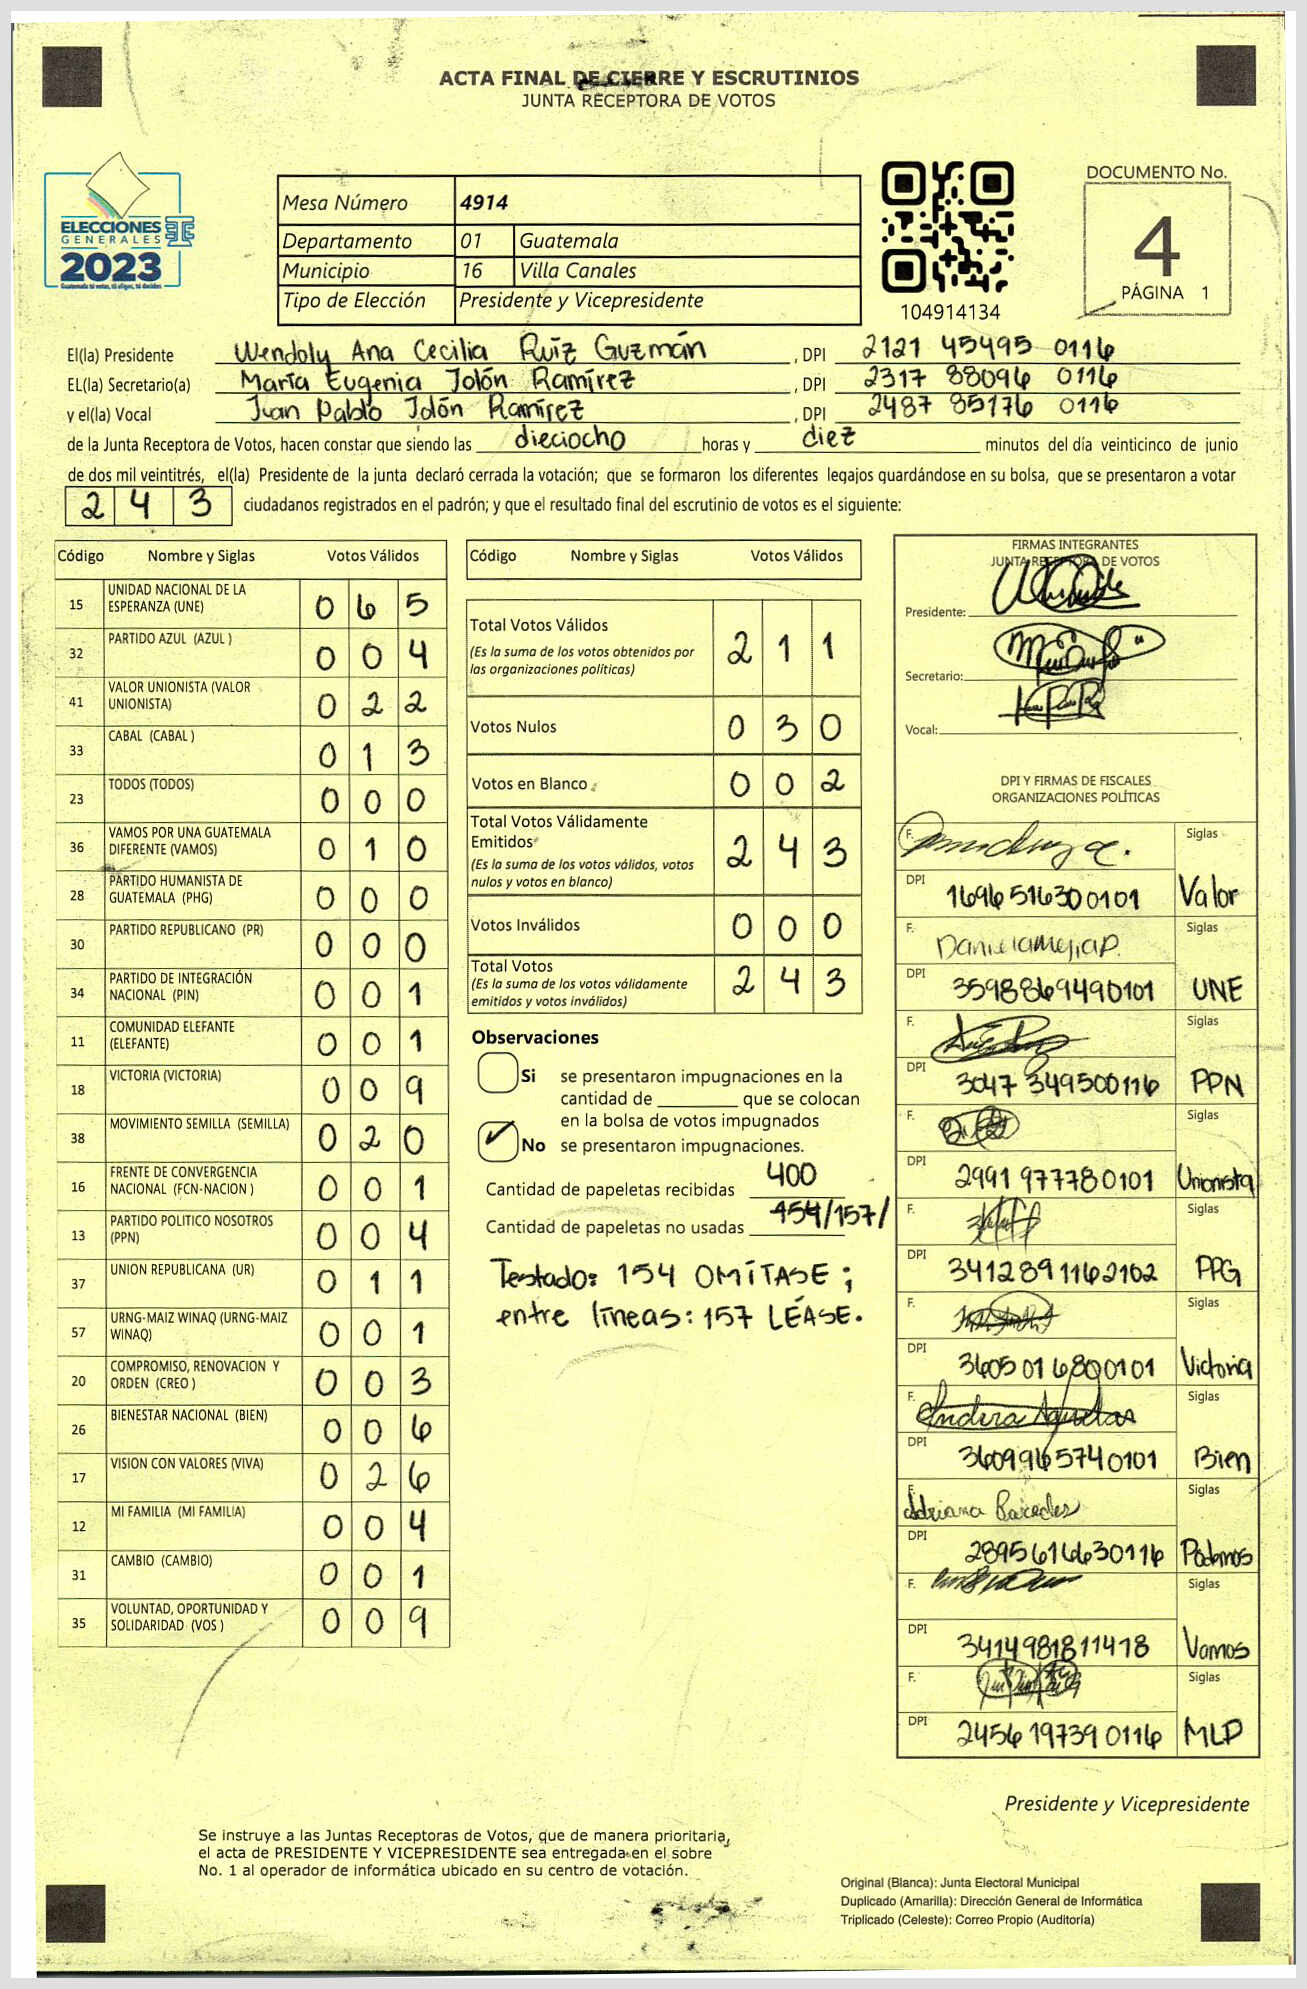 ACTA FINAL DE CIERRE Y ESCRUTINIOS
JUNTA RECEPTORA DE VOTOS
ELECCIONES
GENERALES
2023
Guatemala tú votas, tú eliges, tú decides
Mesa Número 4914
Departamento 01 Guatemala
Municipio 16 Villa Canales
Tipo de Elección Presidente y Vicepresidente
104914134
DOCUMENTO No.
4
PÁGINA 1
El(la) Presidente Wendoly Ana Cecilia Ruíz Guzmán , DPI 2121 45495 0116
EL(la) Secretario(a) María Eugenia Jolón Ramírez , DPI 2317 88096 0116
y el(la) Vocal Juan Pablo Jolón Ramírez , DPI 2487 85176 0116
de la Junta Receptora de Votos, hacen constar que siendo las dieciocho horas y diez minutos del día veinticinco de junio
de dos mil veintitrés, el(la) Presidente de la junta declaró cerrada la votación; que se formaron los diferentes legajos guardándose en su bolsa, que se presentaron a votar
2 4 3 ciudadanos registrados en el padrón; y que el resultado final del escrutinio de votos es el siguiente:
Código Nombre y Siglas Votos Válidos
15 UNIDAD NACIONAL DE LA ESPERANZA (UNE) 0 6 5
32 PARTIDO AZUL (AZUL ) 0 0 4
41 VALOR UNIONISTA (VALOR UNIONISTA) 0 2 2
33 CABAL (CABAL ) 0 1 3
23 TODOS (TODOS) 0 0 0
36 VAMOS POR UNA GUATEMALA DIFERENTE (VAMOS) 0 1 0
28 PARTIDO HUMANISTA DE GUATEMALA (PHG) 0 0 0
30 PARTIDO REPUBLICANO (PR) 0 0 0
34 PARTIDO DE INTEGRACIÓN NACIONAL (PIN) 0 0 1
11 COMUNIDAD ELEFANTE (ELEFANTE) 0 0 1
18 VICTORIA (VICTORIA) 0 0 9
38 MOVIMIENTO SEMILLA (SEMILLA) 0 2 0
16 FRENTE DE CONVERGENCIA NACIONAL (FCN-NACION ) 0 0 1
13 PARTIDO POLITICO NOSOTROS (PPN) 0 0 4
37 UNION REPUBLICANA (UR) 0 1 1
57 URNG-MAIZ WINAQ (URNG-MAIZ WINAQ) 0 0 1
20 COMPROMISO, RENOVACION Y ORDEN (CREO ) 0 0 3
26 BIENESTAR NACIONAL (BIEN) 0 0 6
17 VISION CON VALORES (VIVA) 0 2 6
12 MI FAMILIA (MI FAMILIA) 0 0 4
31 CAMBIO (CAMBIO) 0 0 1
35 VOLUNTAD, OPORTUNIDAD Y SOLIDARIDAD (VOS ) 0 0 9
Código Nombre y Siglas Votos Válidos
Total Votos Válidos 2 1 1
(Es la suma de los votos obtenidos por
las organizaciones políticas)
Votos Nulos 0 3 0
Votos en Blanco 0 0 2
Total Votos Válidamente
Emitidos 2 4 3
(Es la suma de los votos válidos, votos
nulos y votos en blanco)
Votos Inválidos 0 0 0
Total Votos 2 4 3
(Es la suma de los votos válidamente
emitidos y votos inválidos)
Observaciones
Si se presentaron impugnaciones en la
cantidad de ________ que se colocan
en la bolsa de votos impugnados
No se presentaron impugnaciones.
Cantidad de papeletas recibidas 400
Cantidad de papeletas no usadas 154/157/
Testado: 154 OMÍTASE ;
entre líneas: 157 LÉASE.
FIRMAS INTEGRANTES
JUNTA RECEPTORA DE VOTOS
Presidente:
Secretario:
Vocal:
DPI Y FIRMAS DE FISCALES
ORGANIZACIONES POLÍTICAS
F. Siglas
DPI 1696516300101 Valor
F. Daniela Mejia P. Siglas
DPI 3598869490101 UNE
F. Siglas
DPI 3047 349500116 PPN
F. Siglas
DPI 2991 977780101 Unionista
F. Siglas
DPI 3412891162102 PPG
F. Siglas
DPI 3605016800101 Victoria
F. Siglas
DPI 3609965740101 Bien
F. Adriana Paredes Siglas
DPI 2895616630116 Podemos
F. Siglas
DPI 3414981811418 Vamos
F. Siglas
DPI 2456197390116 MLP
Presidente y Vicepresidente
Se instruye a las Juntas Receptoras de Votos, que de manera prioritaria,
el acta de PRESIDENTE Y VICEPRESIDENTE sea entregada en el sobre
No. 1 al operador de informática ubicado en su centro de votación.
Original (Blanca): Junta Electoral Municipal
Duplicado (Amarilla): Dirección General de Informática
Triplicado (Celeste): Correo Propio (Auditoría)